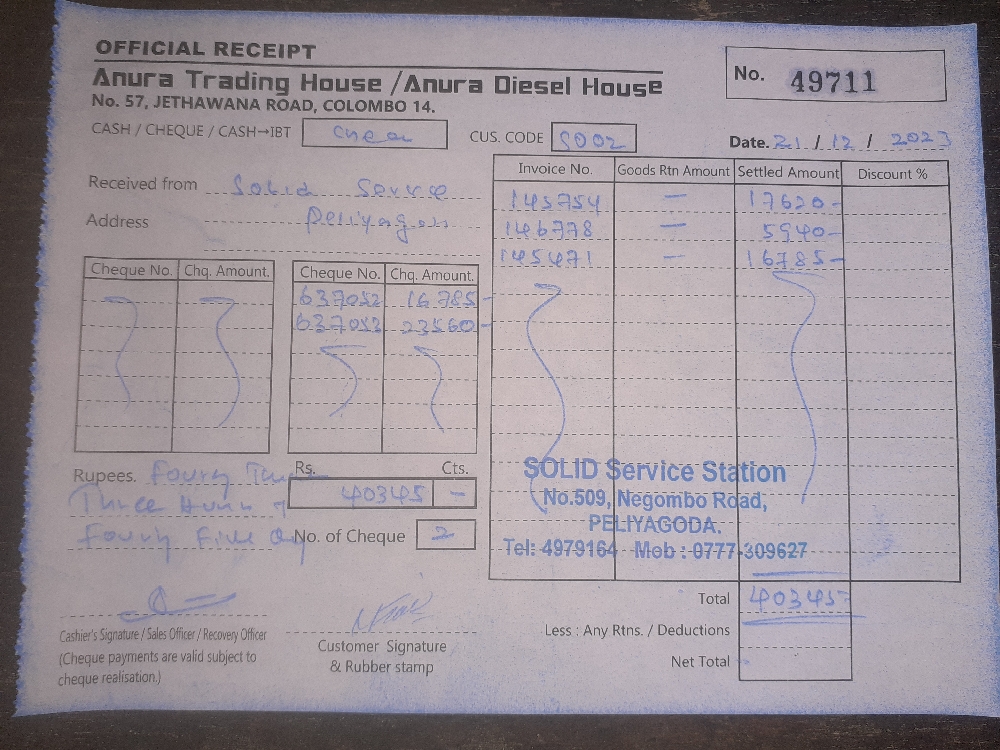 OFFICIAL RECEIPT
Anura Trading House / Anura Diesel House
No. 57, JETHAWANA ROAD, COLOMBO 14.
No. 49711
CASH / CHEQUE / CASH→IBT
CUS. CODE S002
Date. 21 / 12 / 2023
Received from Solid Service
Address
Invoice No. Goods Rtn Amount Settled Amount Discount %
145754 — 17620-
146778 — 5940-
145471 — 16785-
Cheque No. Chq. Amount. Cheque No. Chq. Amount.
637052 16785-
637053 23560-
Rupees. Fourty
Three
Fourty Five
Rs. Cts.
40345 -
No. of Cheque 2
SOLID Service Station
No.509, Negombo Road,
PELIYAGODA.
Tel: 4979164 Mob : 0777-309627
Total 40345-
Less : Any Rtns. / Deductions
Net Total
Cashier's Signature / Sales Officer / Recovery Officer
(Cheque payments are valid subject to
cheque realisation.)
Customer Signature
& Rubber stamp